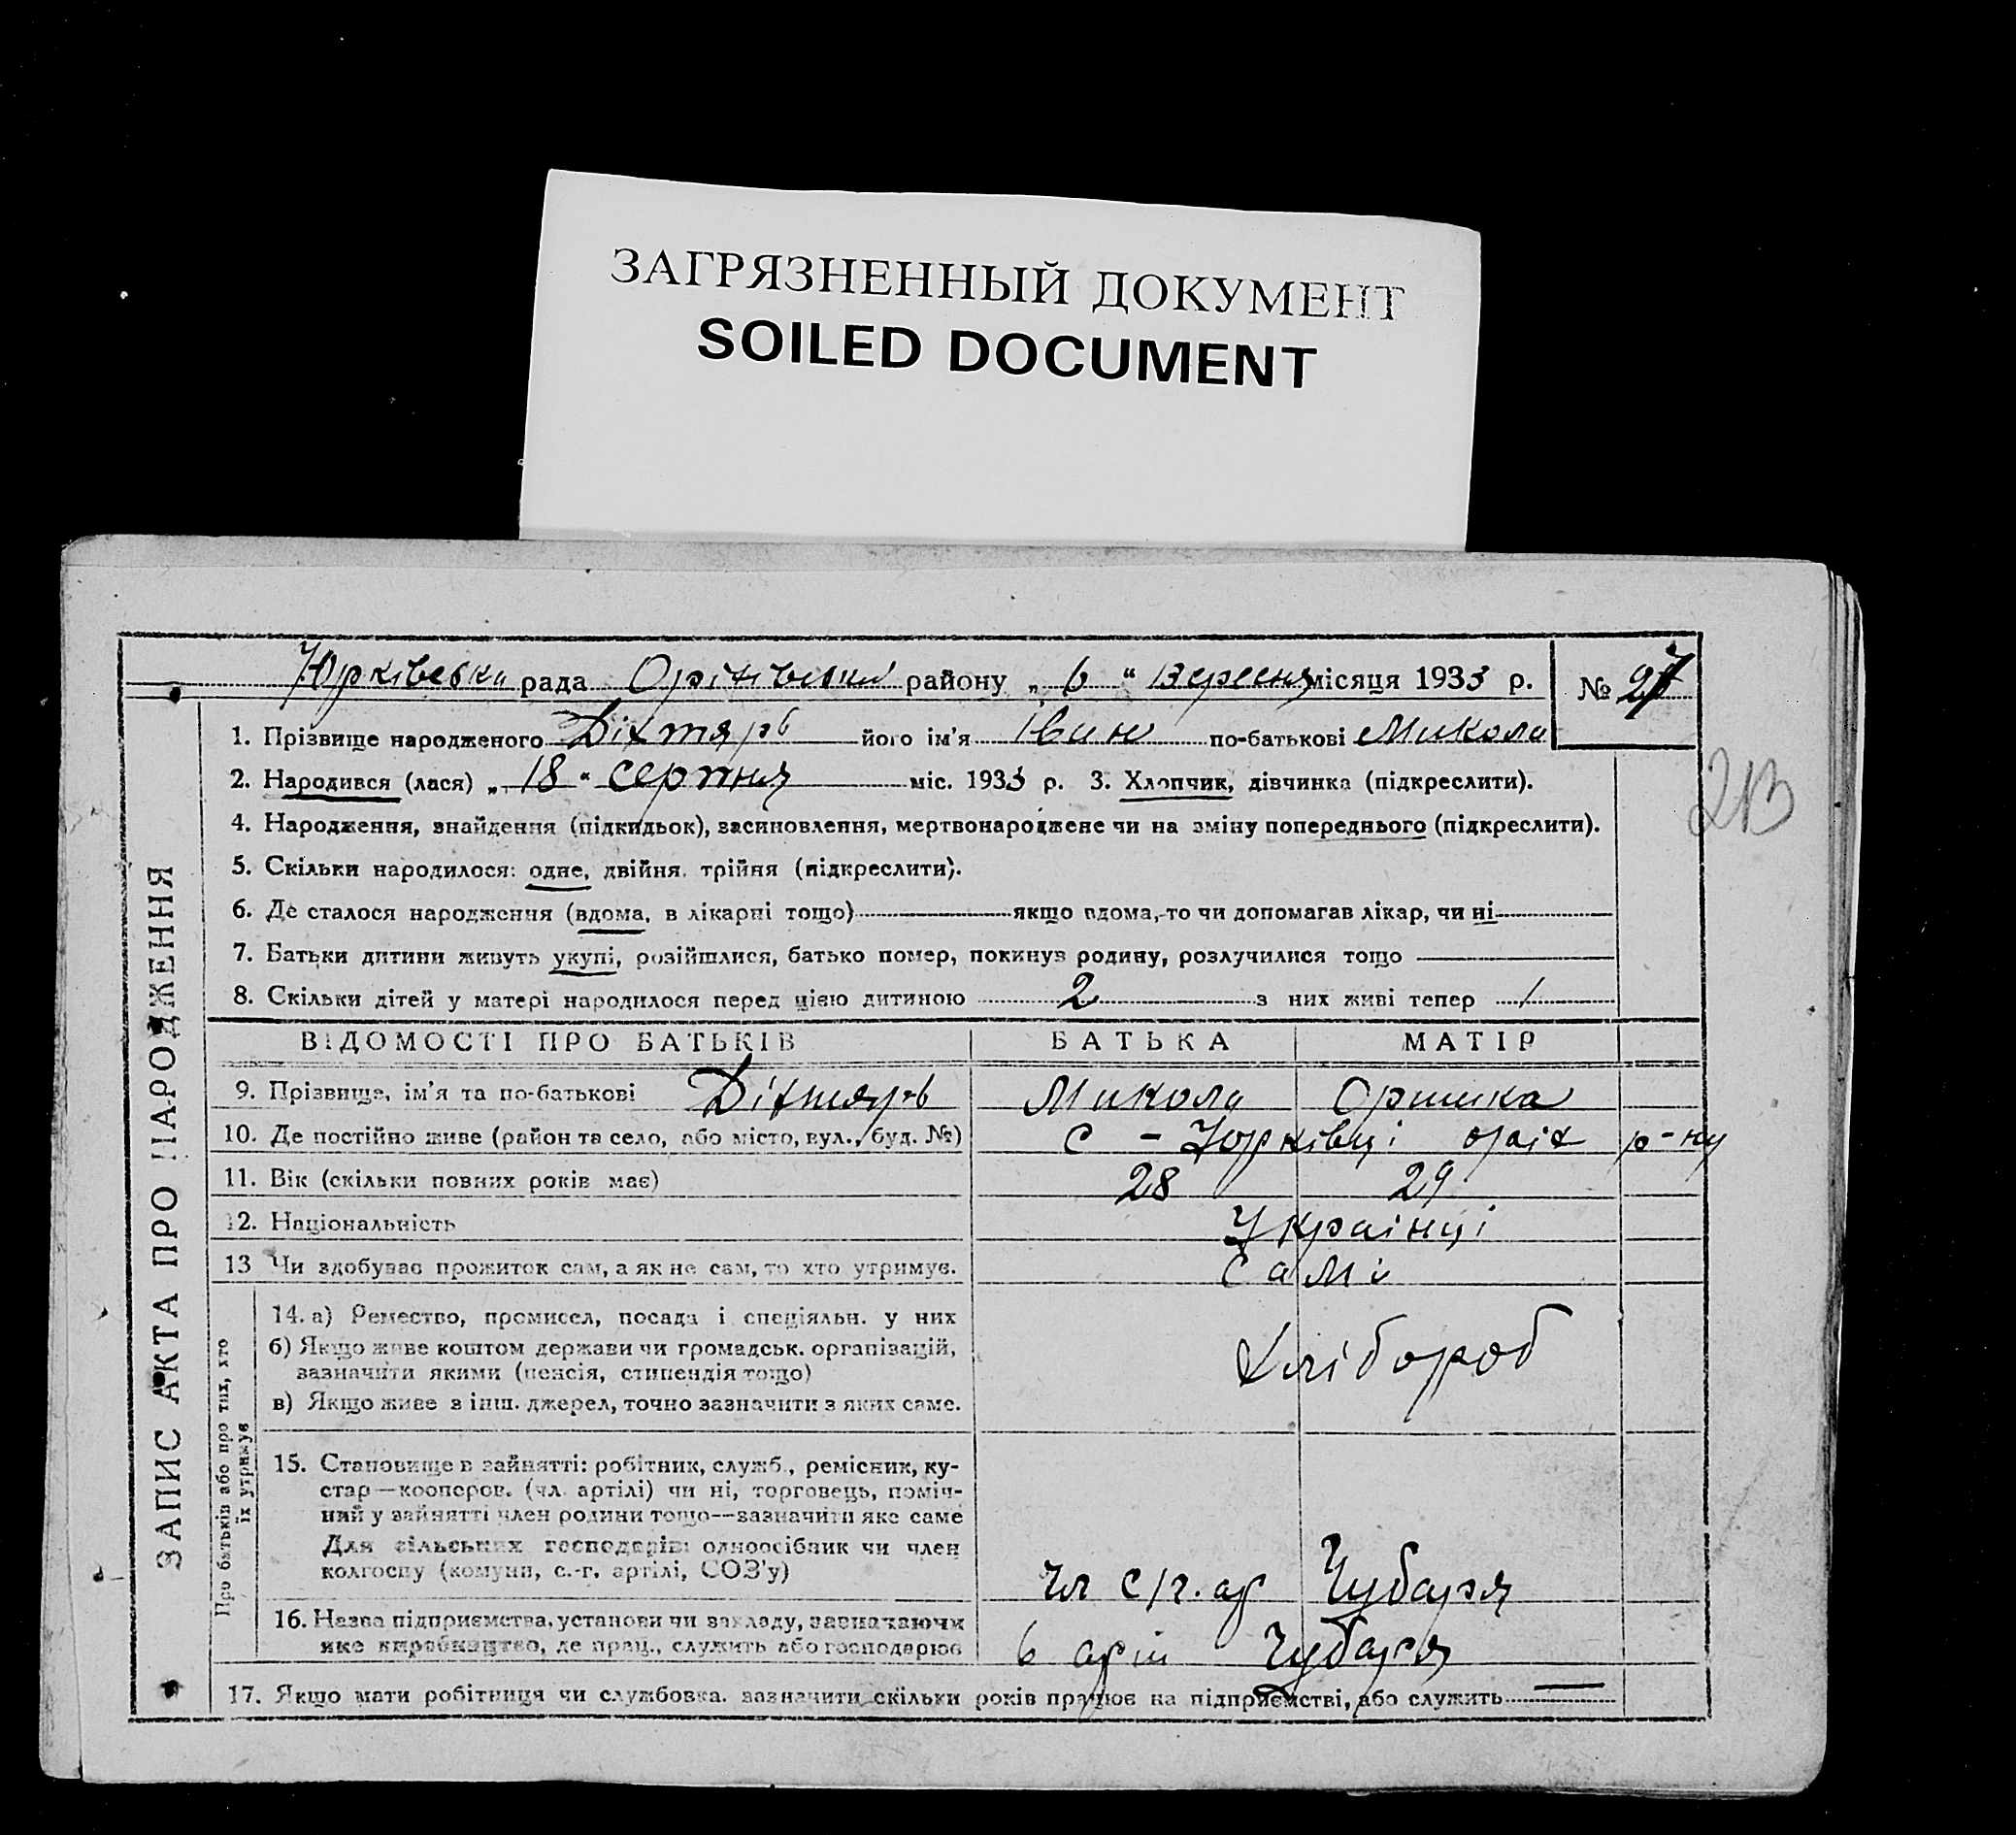 ЗАГРЯЗНЕННЫЙ ДОКУМЕНТ
SOILED DOCUMENT
Юрківська рада Оріхівський району „ 6 “ Вересня місяця 1933 р. № 27
1. Прізвище народженого Діхтярь його ім’я Іван по-батькові Микола
2. Народився (лася) „ 18 “ серпня міс. 1933 р. 3. Хлопчик, дівчинка (підкреслити).
213
4. Народження, знайдення (підкидьок), засиновлення, мертвонароджене чи на зміну попереднього (підкреслити).
5. Скільки народилося: одне, двійня, трійня (підкреслити).
6. Де сталося народження (вдома, в лікарні тощо) якщо вдома, то чи допомагав лікар, чи ні
7. Батьки дитини живуть укупі, розійшлися, батько помер, покинув родину, розлучилися тощо
8. Скільки дітей у матері народилося перед цією дитиною 2 з них живі тепер 1
ЗАПИС АКТА ПРО НАРОДЖЕННЯ
ВІДОМОСТІ ПРО БАТЬКІВ БАТЬКА МАТІР
9. Прізвище, ім’я та по-батькові Діхтярь Микола Оришка
10. Де постійно живе (район та село, або місто, вул., буд. №) с - Юрківці оріх р-ну
11. Вік (скільки повних років має) 28 29
12. Національність Украінці
13 Чи здобуває прожиток сам, а як не сам, то хто утримує. Самі
Про батьків або про тих, хто їх утримує
14. а) Ремество, промисел, посада і спеціяльн. у них
б) Якщо живе коштом держави чи громадськ. організацій,
зазначити якими (пенсія, стипендія тощо) Хлібороб
в) Якщо живе з інш. джерел, точно зазначити з яких саме.
15. Становище в зайнятті: робітник, служб., ремісник, ку-
стар—кооперов. (чл. артілі) чи ні, торговець, поміч-
ний у зайнятті член родини тощо—зазначити яке саме
Для сільських господарів: одноосібник чи член
колгоспу (комуни, с.-г. артілі, СОЗ’у) чл с/г. ар Чубаря
16. Назва підприємства, установи чи закладу, зазначаючи
яке виробництво, де прац., служить або господарює в арт Чубаря
17. Якщо мати робітниця чи службовка, зазначити скільки років працює на підприємстві, або служить